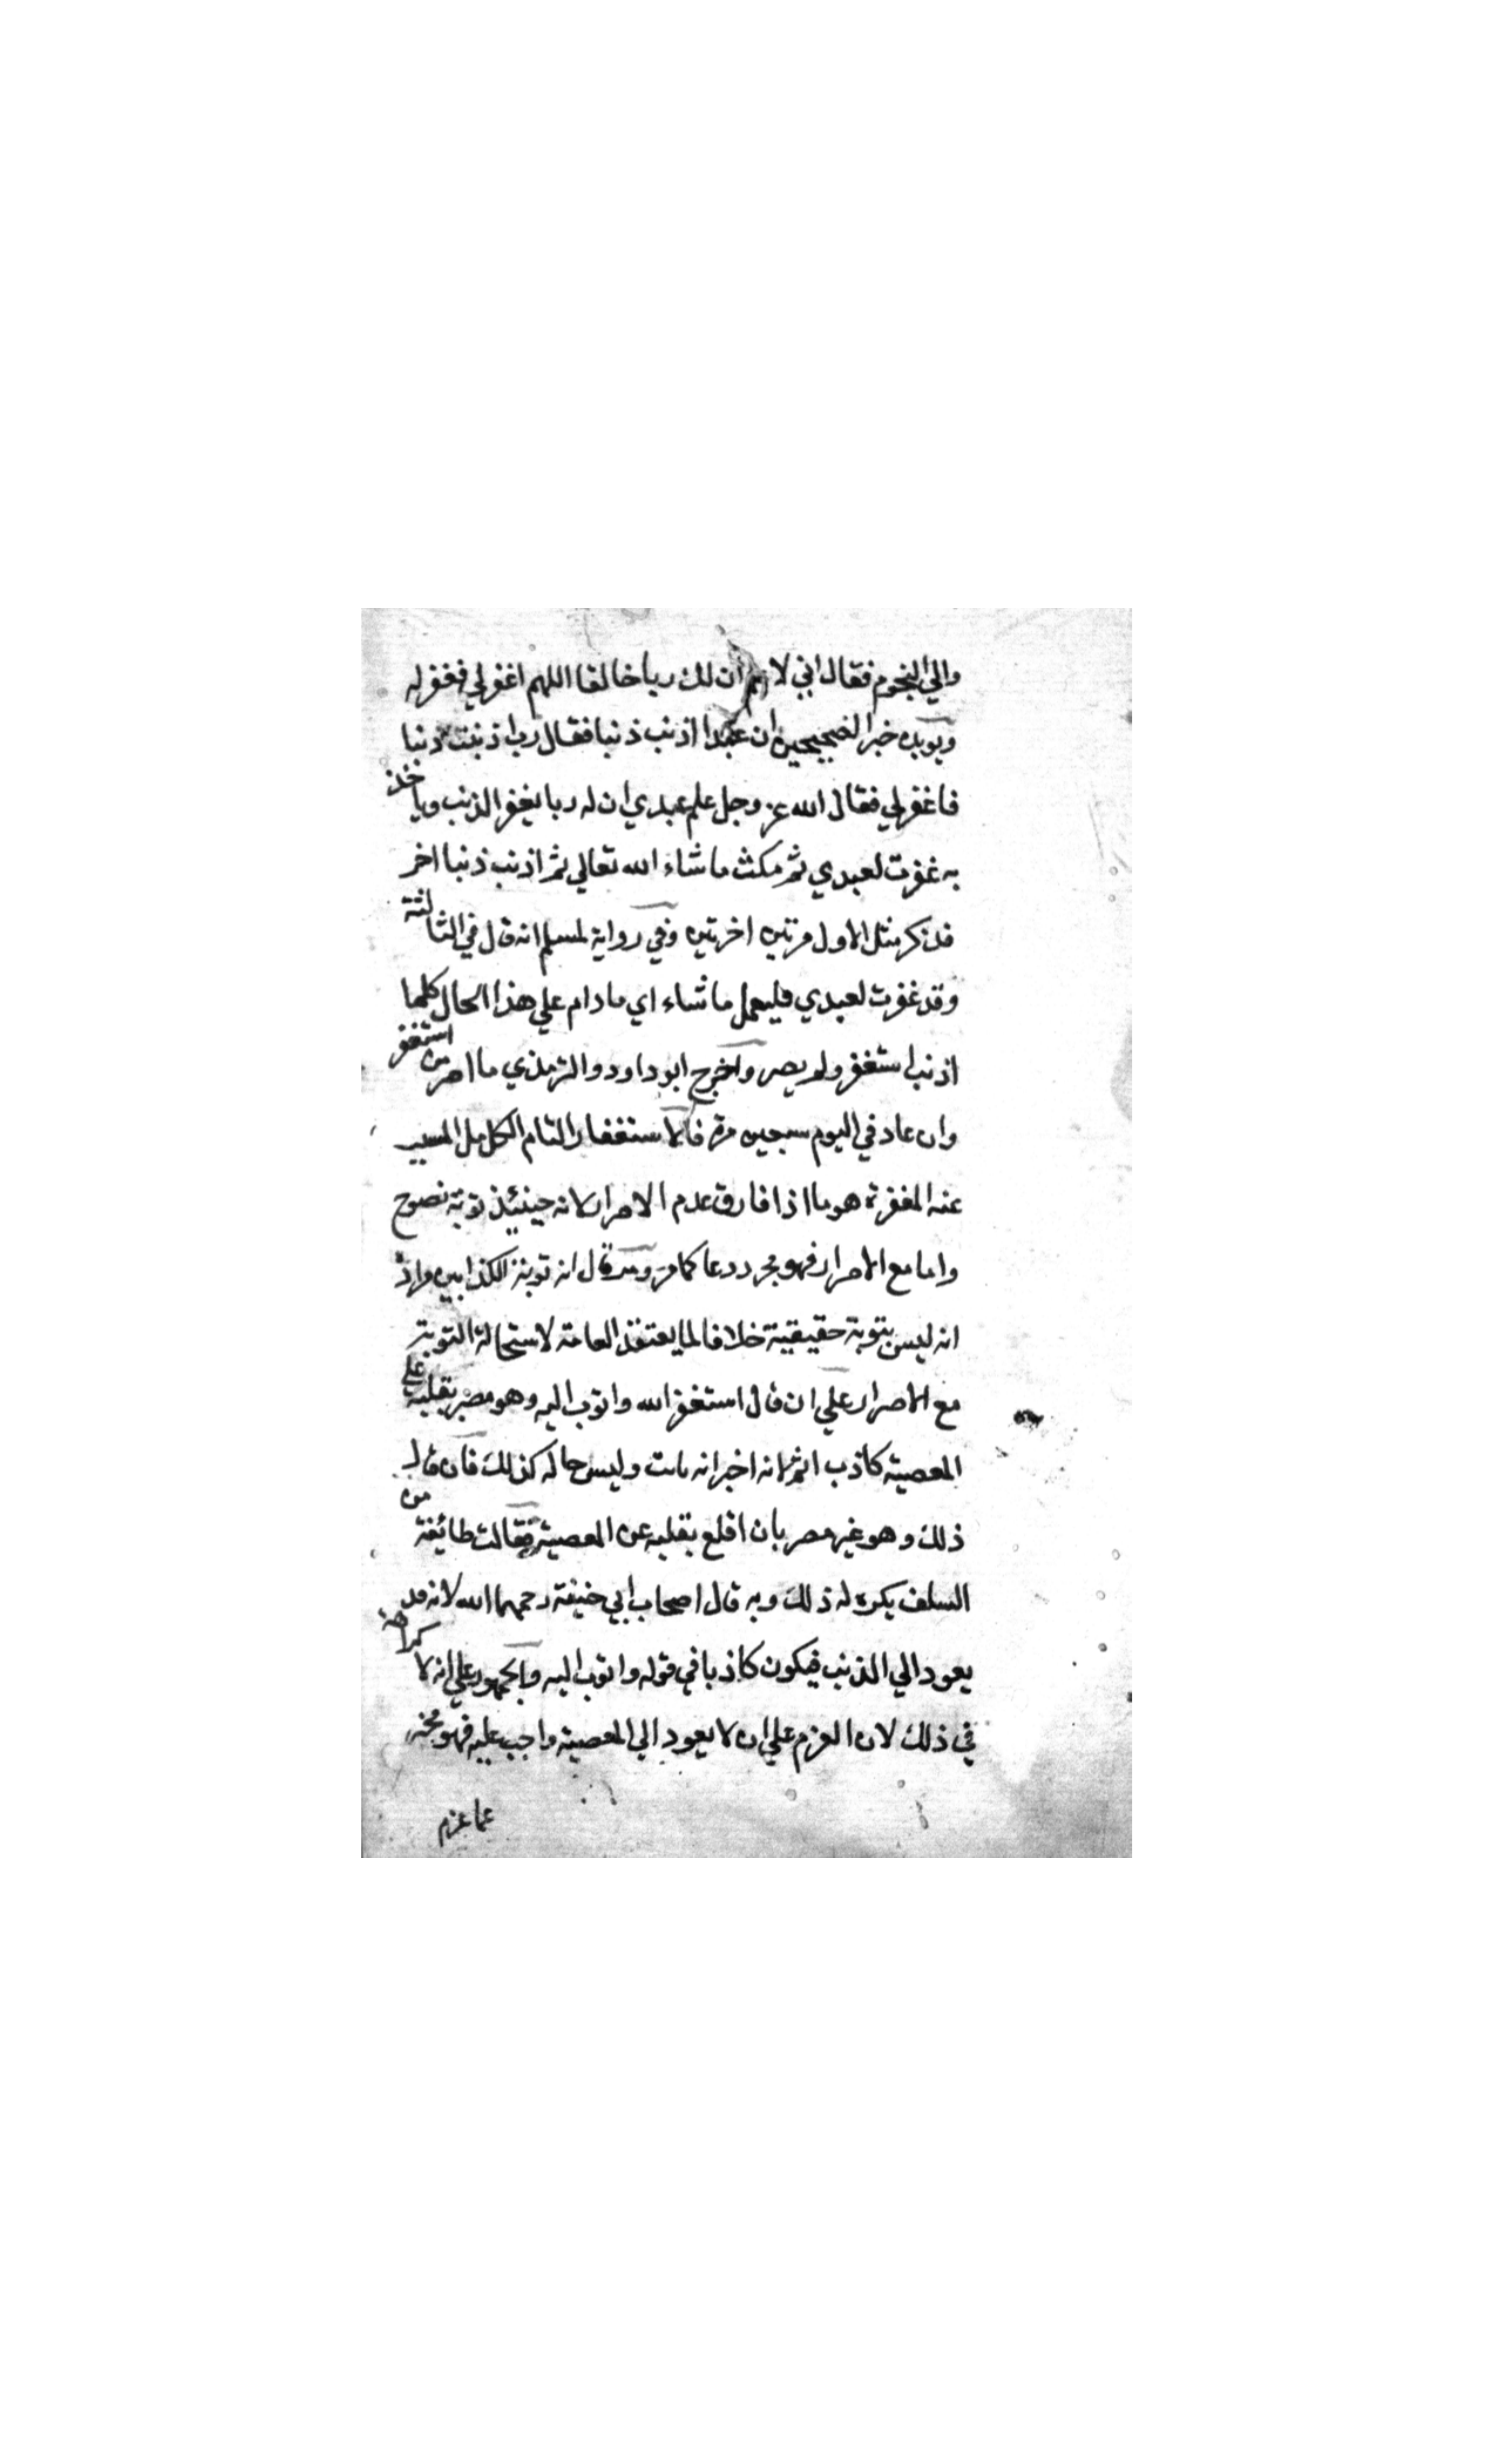 والي النجوم فقال اني لاعلم ان لك ربا خالقا اللهم اغفر لي فغفر له
ويويده خبر الصحيحين ان عبدا اذنب ذنبا فقال رب اذنبت ذنبا
فاغفر لي فقال الله عز وجل علم عبدي ان له ربا يغفر الذنب وياخذ
به غفرت لعبدي ثم مكث ما شاء الله تعالي ثم اذنب ذنبا اخر
فذكر مثل الاول مرتين اخرتين وفي رواية لمسلم انه قال في الثالثة
وقد غفرت لعبدي فليعمل ما شاء اي ما دام علي هذا الحال كلما
اذنب استغفر ولم يصر واخرج ابو داود والترمذي ما اصر من استغفر
وان عاد في اليوم سبعين مرة فالاستغفار التام الكامل المسبب
عنه المغفرة هو ما اذا فارق عدم الاصرار لانه حينئذ توبة نصوح
واما مع الاصرار فهو مجرد دعا كما مر ومن قال انه توبة الكذابين مراده
انه ليس بتوبة حقيقية خلافا لما يعتقد العامة لاستحالة التوبة
مع الاصرار علي ان قال استغفر الله واتوب اليه وهو مصر بقلبه علي
المعصية كاذب اثم لانه اخبر انه تائب وليس حاله كذلك فان قال
ذلك وهو غير مصر بان اقلع بقلبه عن المعصية فقالت طائفة من
السلف يكره له ذلك وبه قال اصحاب ابي حنيفة رحمهما الله لانه قد
يعود الي الذنب فيكون كاذبا في قوله واتوب اليه والجمهور علي انه لا كراهة
في ذلك لان العزم علي ان لا يعود الي المعصية واجب عليه فهو مخبر
عما عزم